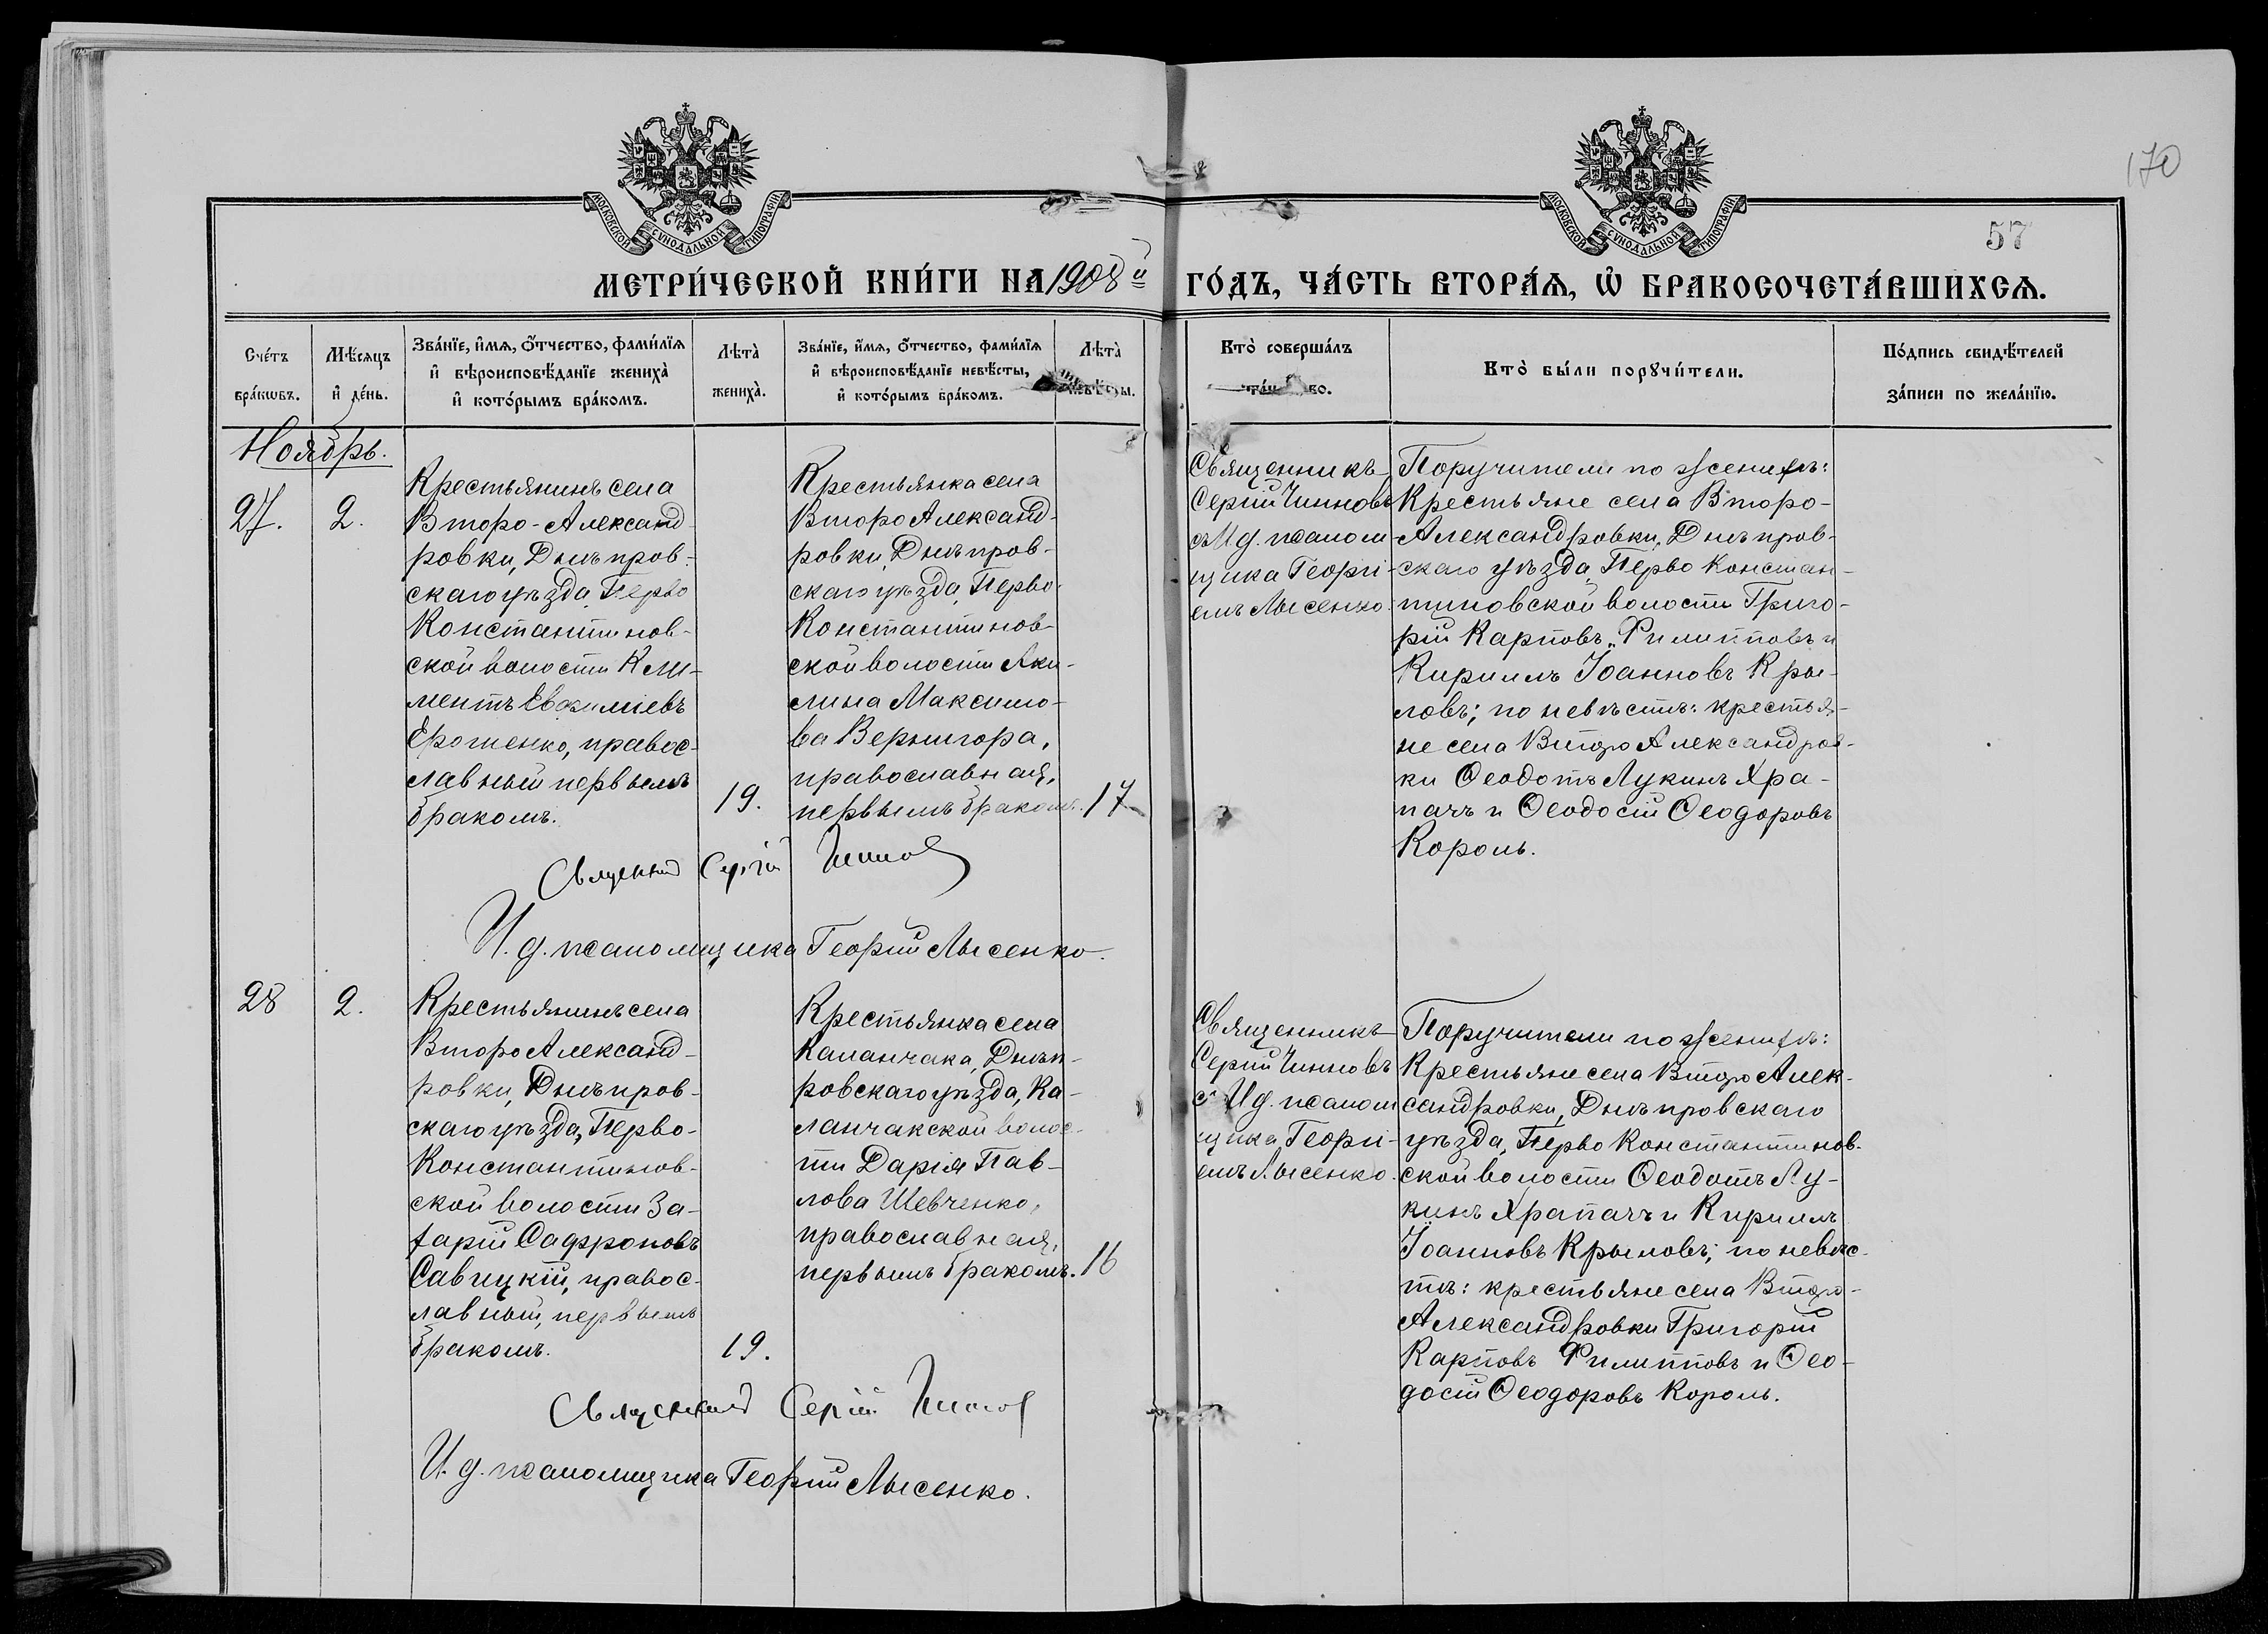 170
57
МОСКОВСКОЙ СѴНОДАЛЬНОЙ ТИПОГРАФІИ
МОСКОВСКОЙ СѴНОДАЛЬНОЙ ТИПОГРАФІИ
МЕТРИ́ЧЕСКОЙ КНИ́ГИ НА 1908й ГО́ДЪ, ЧА́СТЬ ВТОРА́Ѧ, Ѡ҆ БРАКОСОЧЕТА́ВШИХСѦ.
Сче́тъ
бра́кѡвъ.
Мѣ́сяцъ
и҆ де́нь.
Зва́нїе, и҆́мѧ, ѻ҆́тчество, фами́лїѧ
и҆ вѣроисповѣ́данїе жениха̀
и҆ кото́рымъ бра́комъ.
Лѣта̀
жениха̀.
Зва́нїе, и҆́мѧ, ѻ҆́тчество, фами́лїѧ
и҆ вѣроисповѣ́данїе невѣ́сты,
и҆ кото́рымъ бра́комъ.
Лѣта̀
невѣ́сты.
Кто̀ соверша́лъ
та́инство.
Кто̀ бы́ли порꙋчи́тели.
По́дпись свидѣ́телей
за́писи по жела́нїю.
Ноябрь.
27.
2.
Крестьянинъ села
Второ-Александ-
ровки, Днѣпров-
скаго уѣзда, Перво
Константинов-
ской волости Кли-
ментъ Евфиміевъ
Ерошенко, правос-
лавный первымъ
бракомъ.
19.
Крестьянка села
Второ Александ-
ровки, Днѣпров-
скаго уѣзда, Перво-
Константинов-
ской волости Аки-
лина Максимо-
ва Вернигора,
православная,
первымъ бракомъ.
17
Священникъ
Сергій Чинновъ
съ И д. псалом
щика Георгі-
емъ Лысенко.
Поручители по женихѣ:
Крестьяне села Второ-
Александровки, Днѣпров-
скаго уѣзда, Перво Констан-
тиновской волости Григо-
рій Карповъ Филипповъ и
Кириллъ Іоанновъ Кры-
ловъ; по невѣстѣ: крестья-
не села Второ Александров-
ки Ѳеодотъ Лукинъ Хра-
пачъ и Ѳеодосій Ѳеодоровъ
Король.
Священникъ Сергій Чинновъ
И. д. псаломщика Георгій Лысенко.
28
2.
Крестьянинъ села
Второ Александ-
ровки, Днѣпров-
скаго уѣзда, Перво-
Константинов-
ской волости За-
харій Сафроновъ
Савицкій, правос-
лавный, первымъ
бракомъ.
19.
Крестьянка села
Каланчака, Днѣп-
ровскаго уѣзда, Ка-
ланчакской волос-
ти Дарія Пав-
лова Шевченко,
православная,
первымъ бракомъ.
16
Священникъ
Сергій Чинновъ
съ И д. псалом
щика Георгі-
емъ Лысенко.
Поручители по женихѣ:
Крестьяне села Второ Алек-
сандровки, Днѣпровскаго
уѣзда, Перво Константинов-
ской волости Ѳеодотъ Лу-
кинъ Храпачъ и Кириллъ
Іоанновъ Крыловъ; по невѣс-
тѣ: крестьяне села Второ-
Александровки Григорій
Карповъ Филипповъ и Ѳео-
досій Ѳеодоровъ Король.
Священникъ Сергій Чинновъ
И. д. псаломщика Георгій Лысенко.